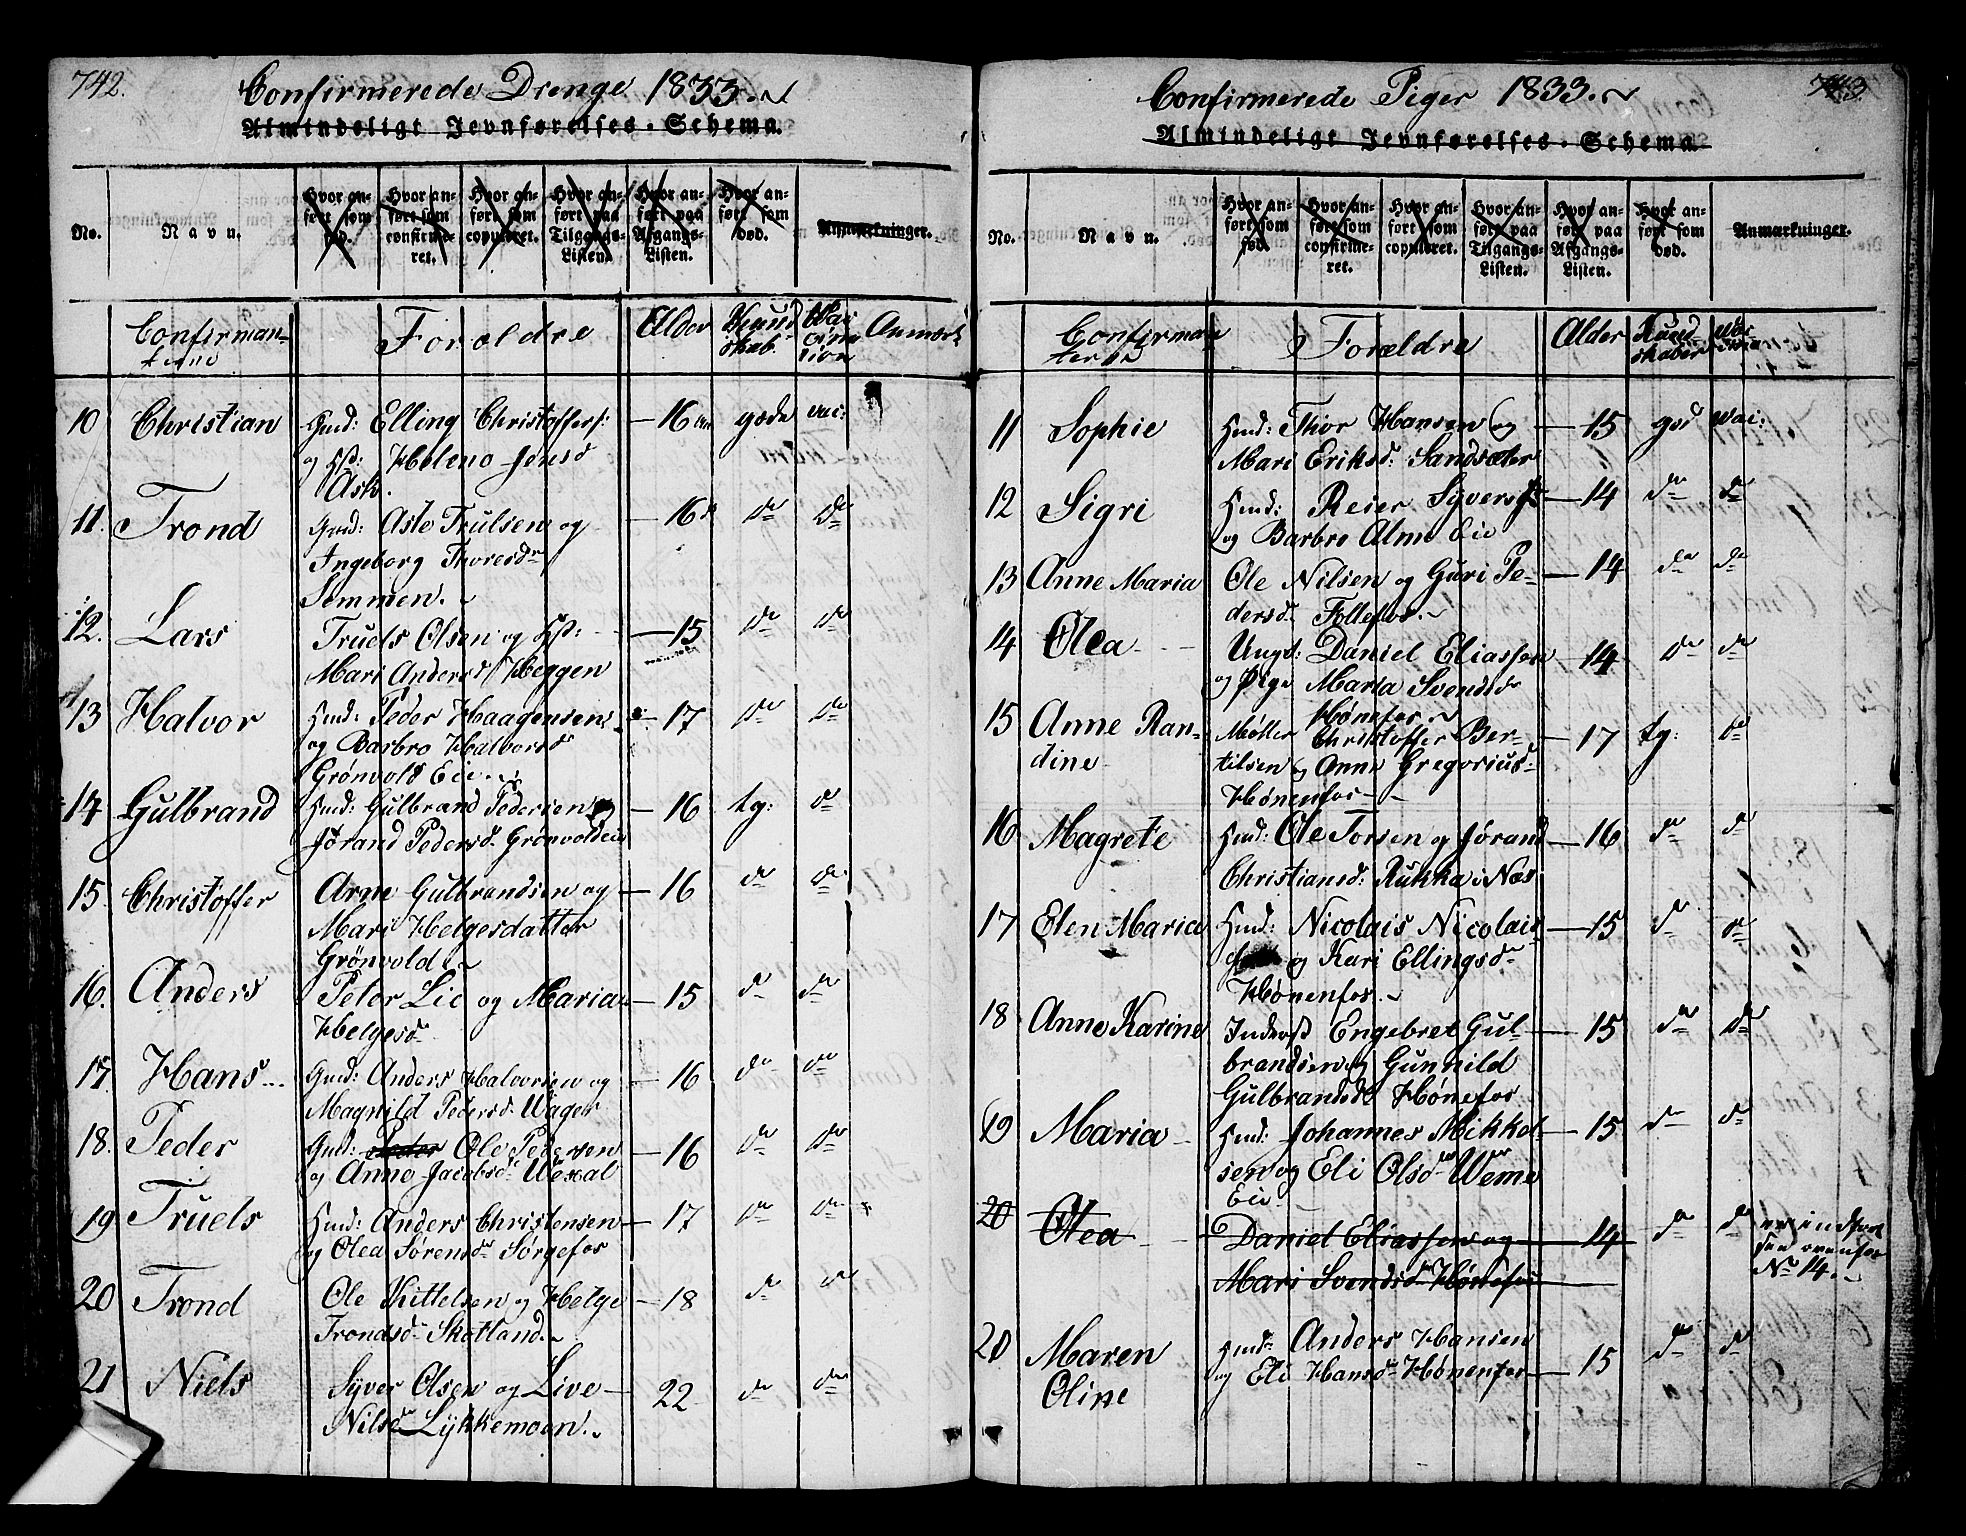 742.
Confirmerede Drenge 1833.
Almindeligt Jevnførelses-Schema.
No.
Navn.
Hvor anført som fød.
Hvor anført som confirmeret.
Hvor anført som copuleret.
Hvor anført paa Tilgangs-Listen.
Hvor anført paa Afgangs-Listen.
Hvor anført som død.
Anmærkninger.
Confirmanterne
Forældre
Alder
Kundskab.
Vaccination
Anmærk
10 Christian Huusmd: Elling Christoffers: 16 Aar gode vac:
og Hst: Helene Jensd
Ask.
11. Trond Gmd: Aste Trulsen og 16 do do
Ingeborg Thoresdr
Semmen.
12. Lars Truels Olsen og Hst: 15 do do
Mari Andersd Heggen
13 Halvor Hmd: Peder Haagensen 17 do do
og Barbro Halvorsd
Grønvold Eie.
14 Gulbrand Hmd: Gulbrand Pedersen 16 tg: do
Jørand Pedersd. Grønvoldeie
15 Christoffer Arne Gulbrandsen og 16 do do
Mari Helgesdatter
Grønvold
16. Anders Peter Lie og Maria 15 do do
Helgesd
17. Hans Gmd: Anders Halvorsen og 16 do do
Magnild Pedersd. Wager
18. Peder Gmd: Peder Ole Pedersen 16 do do
og Anne Jacobsd. Wexal
19 Truels Hmd: Anders Christensen 17 do do
og Olea Sørensdr Sørgefos
20 Trond Ole Kittelsen og Helge 18 do do
Trondsd. Skotland.
21 Niels Syver Olsen og Live 22 do do
Nilsd Lykkemoen.
743.
Confirmerede Piger 1833.
Almindeligt Jevnførelses-Schema.
No.
Navn.
Hvor anført som fød.
Hvor anført som confirmeret.
Hvor anført som copuleret.
Hvor anført paa Tilgangs-Listen.
Hvor anført paa Afgangs-Listen.
Hvor anført som død.
Anmærkninger.
Confirmanterne
Forældre
Alder
Kundskaber
11 Sophie Hmd: Thor Hansen og 15 god vac:
Mari Eriksd: Sandsæter
12 Sigri Hmd: Reier Syvers 14 do do
og Barbro Alm Eie
13 Anne Maria Ole Nilsen og Guri Pe- 14 do do
dersd. Follefos.
14 Olea Ungd: Daniel Eliassen 14 do do
og Pige Maria Svendsdr
Hønefos.
15 Anne Ran- Møller Christoffer Ber- 17 tg: do
dine tilsen og Anne Gregorius-
Hønenfos
16 Magrete Hmd: Ole Torsen og Jørand 16 do do
Christiansd: Rukka i Næs
17 Elen Maria Hmd: Nicolais Nicolai- 15 do do
og Kari Ellingsd
Hønenfos.
18 Anne Karine Inderst Engebret Gul- 15 do do
brandsen og Gunnild
Gulbrandsd. Hønefos
19 Maria Hmd: Johannes Mikkel- 15 do do
sen og Eli Olsdr Weme
Eie
20 Olea Daniel Eliassen og 14 do do er indført
Mari Svendsd. Hønefos see ovenfor
No 14.
20 Maren Hmd: Anders Hansen
Oline og Eli Hansd. Hønenfos 15 do do